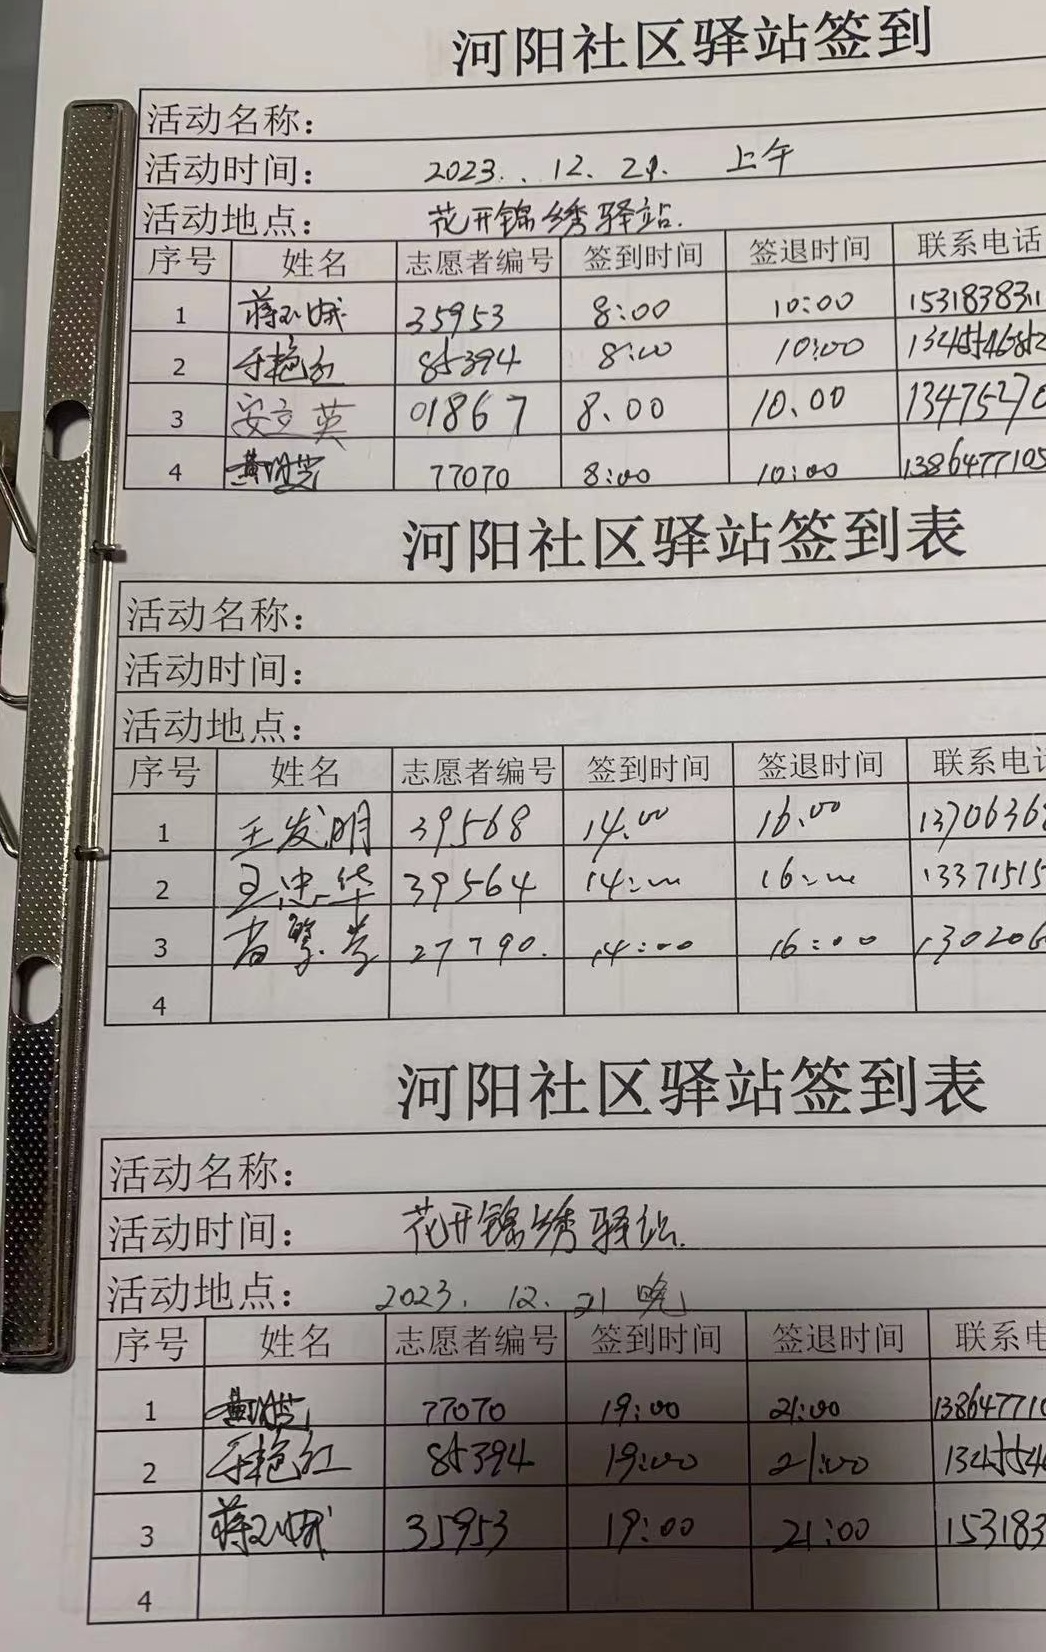 河阳社区驿站签到
活动名称：
活动时间： 2023.12.21. 上午
活动地点： 花开锦绣驿站.
序号 姓名 志愿者编号 签到时间 签退时间 联系电话
1 35953 8:00 10:00 153183831
2 于艳红 85394 8:00 10:00
3 安立英 01867 8.00 10.00 13475270
4 77070 8:00 10:00 1386477105
河阳社区驿站签到表
活动名称：
活动时间：
活动地点：
序号 姓名 志愿者编号 签到时间 签退时间 联系电话
1 王发明 39568 14.00 16.00 1370636
2 王忠华 39564 14:00 16:00 13371515
3 27790. 14:00 16:00 130206
4
河阳社区驿站签到表
活动名称：
活动时间： 花开锦绣驿站.
活动地点： 2023.12.21 晚
序号 姓名 志愿者编号 签到时间 签退时间 联系电
1 77070 19:00 21:00 138647710
2 于艳红 85394 19:00 21:00 1345546
3 35953 19:00 21:00 153183
4